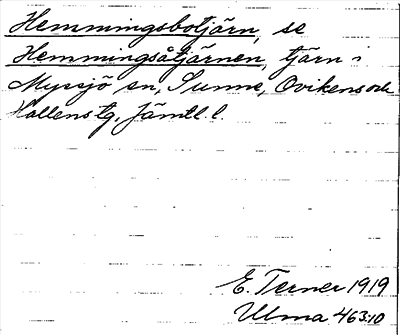 Hemmingsbotjärn, se
Hemmingsåtjärnen, tjärn i
Myssjö sn, Sunne, Ovikens och
Hallens tg, Jämtl. l.
E. Terner 1919
Ulma 463:10